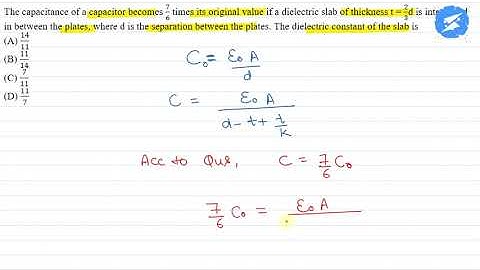 The capacitance of a capacitor becomes 7/6 times its original value if a dielectric slab of thickness t = 2/3 d is
in between the plates, where d is the separation between the plates. The dielectric constant of the slab is
(A) 14/11
(B) 11/14
(C) 7/11
(D) 11/7
C₀ = ε₀ A / d
C = ε₀ A / (d - t + t/k)
Acc to Que, C = 7/6 C₀
7/6 C₀ = ε₀ A